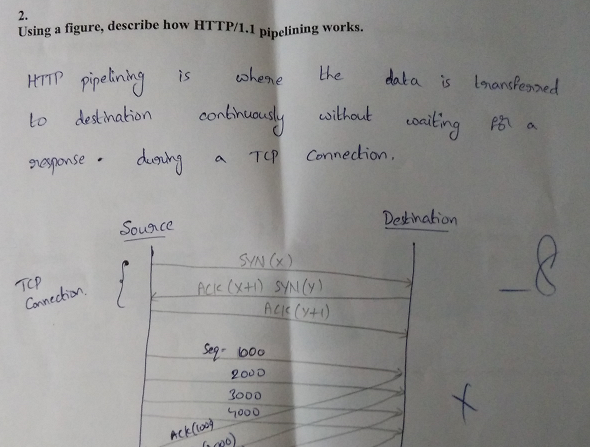 2.
Using a figure, describe how HTTP/1.1 pipelining works.
HTTP pipelining is where the data is transferred
to destination continuously without waiting for a
response. during a TCP Connection.
Source
Destination
SYN (x)
TCP
Connection.
ACK (x+1) SYN (y)
ACK (y+1)
-8
Seq- 1000
2000
3000
4000
x